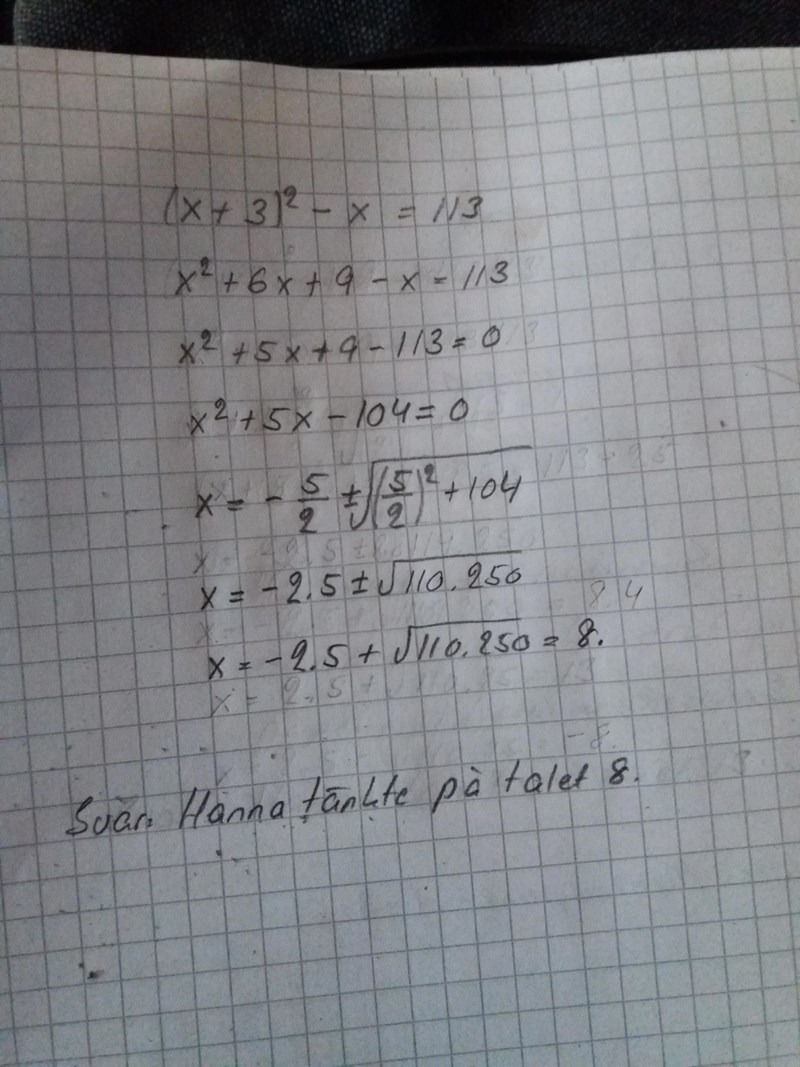 (x + 3)² - x = 113
x² + 6x + 9 - x = 113
x² + 5x + 9 - 113 = 0
x² + 5x - 104 = 0
x = - 5/2 ± √(5/2)² + 104
x = -2.5 ± √110.250
x = -2.5 + √110.250 = 8.
Svar. Hanna tänkte på talet 8.